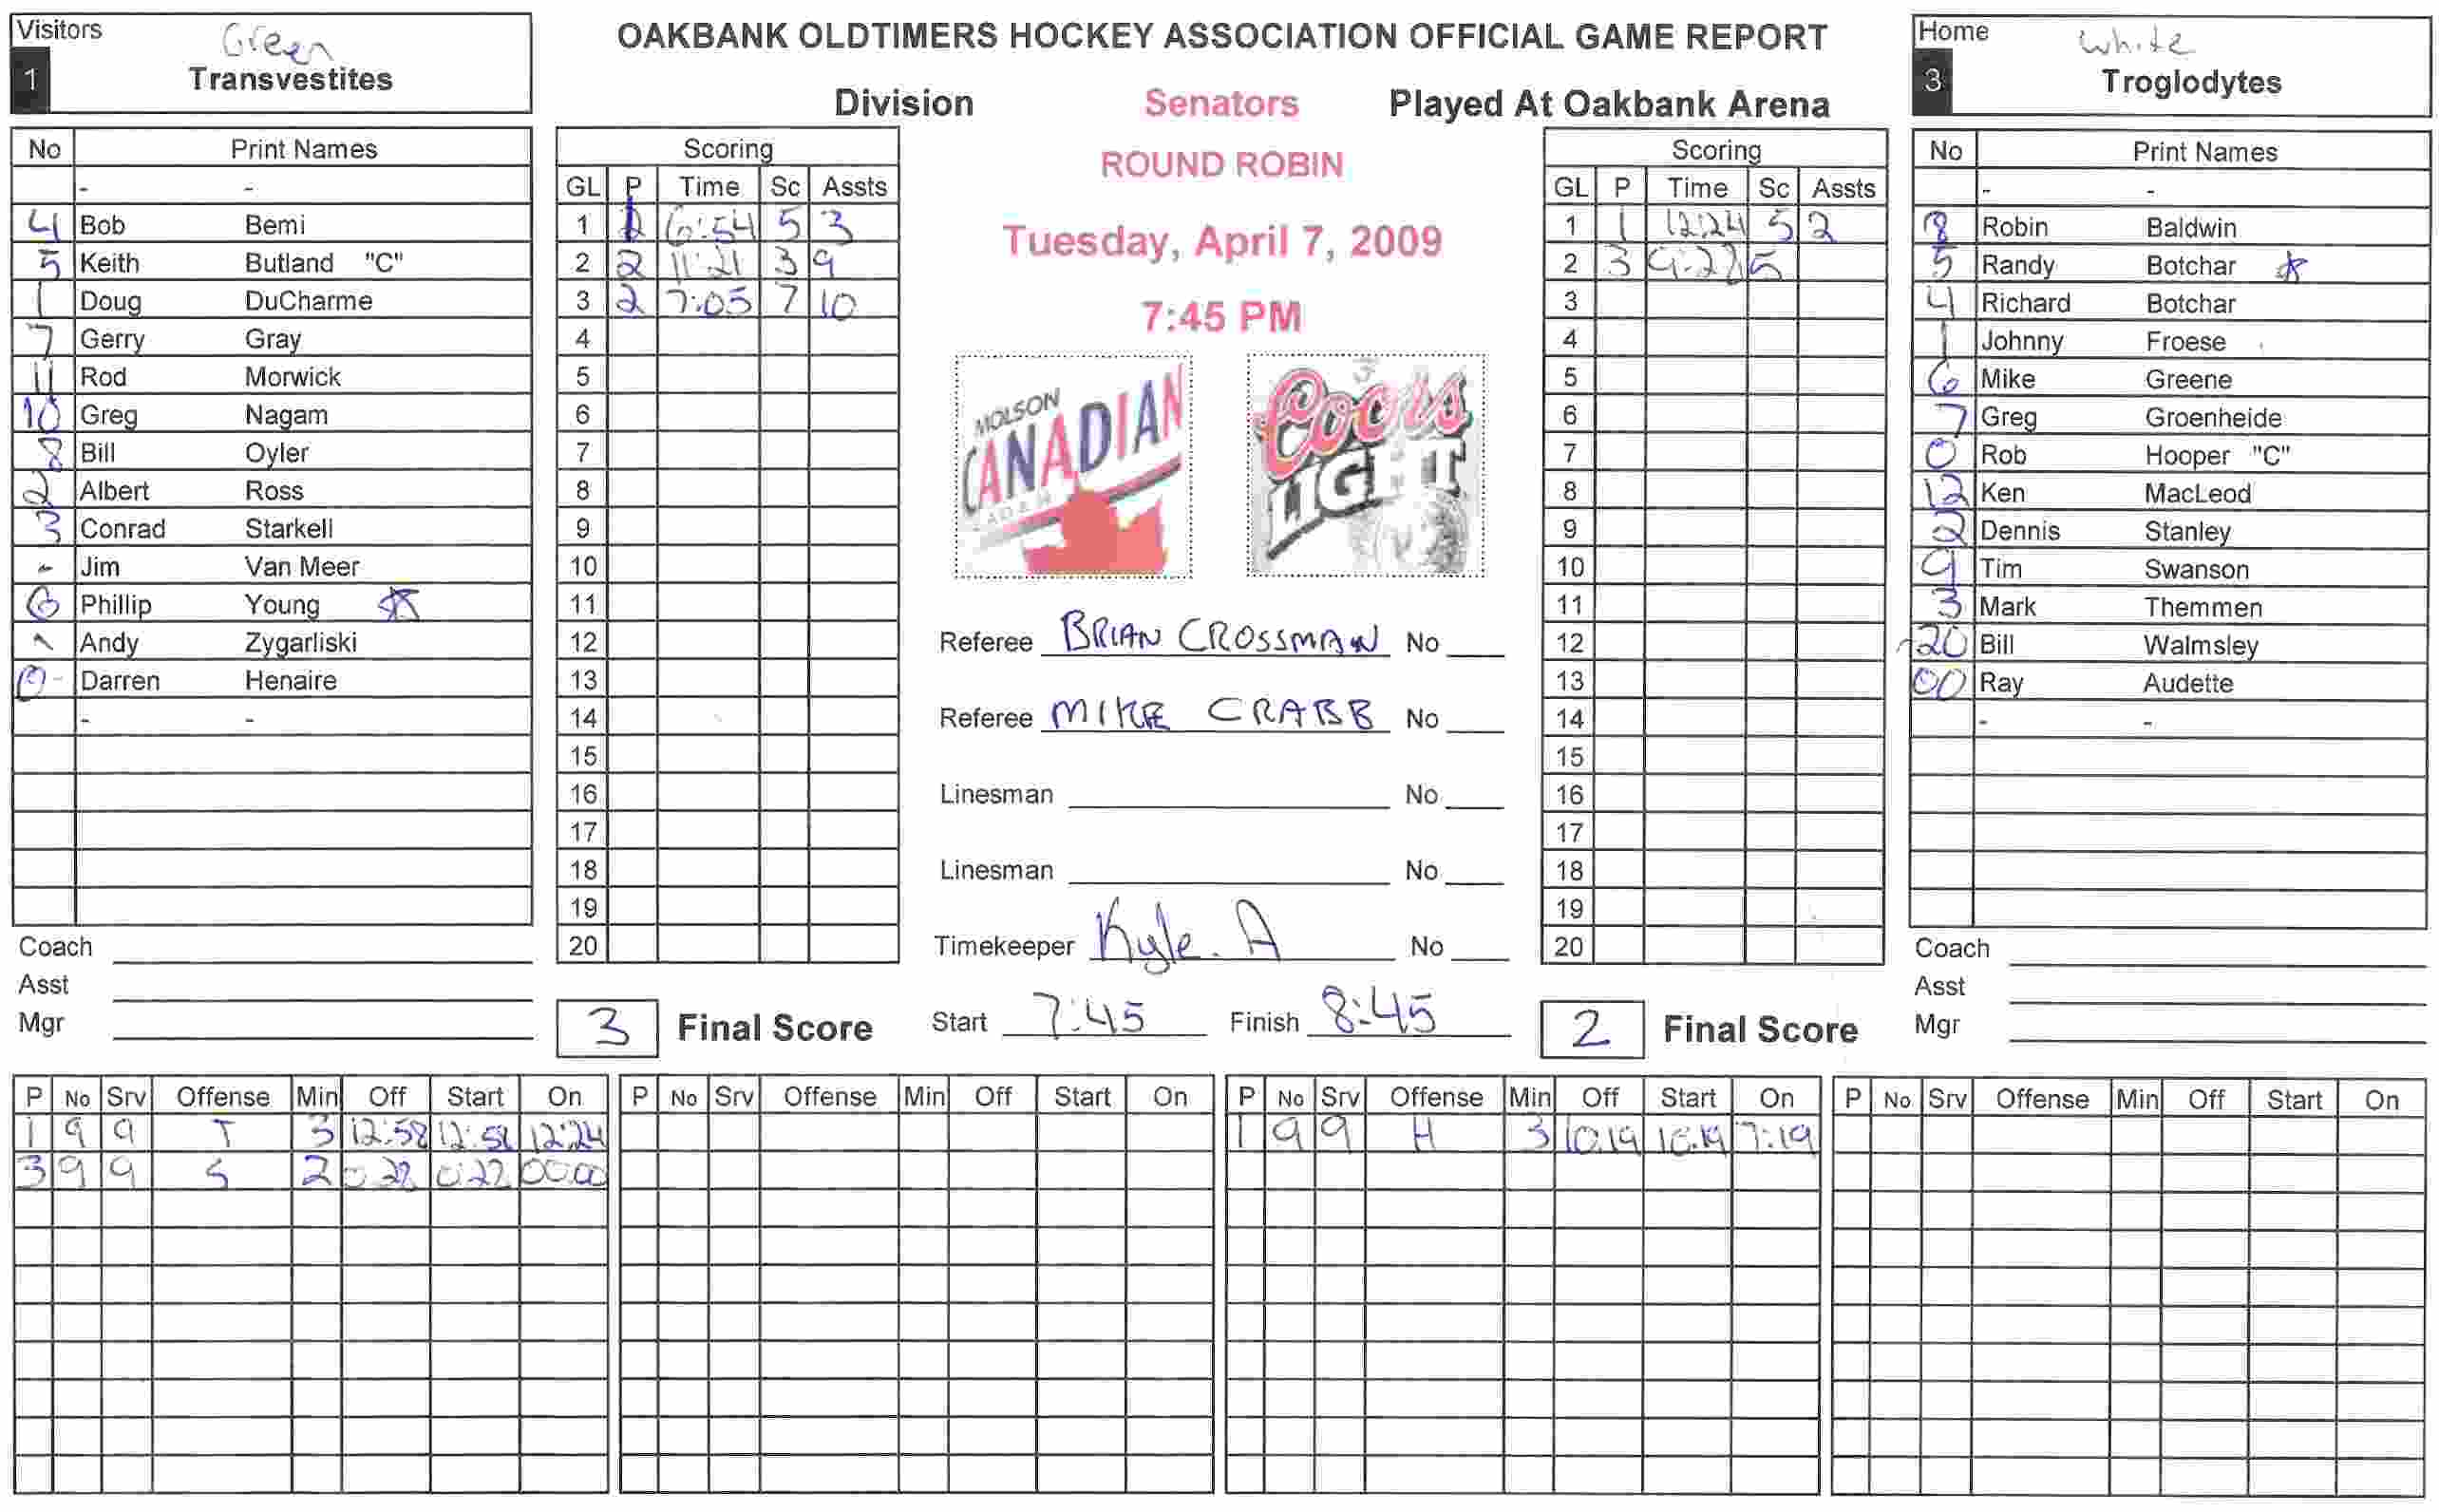 Visitors
Green
1
Transvestites
OAKBANK OLDTIMERS HOCKEY ASSOCIATION OFFICIAL GAME REPORT
Division Senators Played At Oakbank Arena
ROUND ROBIN
Tuesday, April 7, 2009
7:45 PM
Home
White
3
Troglodytes
No Print Names
- -
4 Bob Bemi
5 Keith Butland "C"
1 Doug DuCharme
7 Gerry Gray
11 Rod Morwick
10 Greg Nagam
8 Bill Oyler
2 Albert Ross
3 Conrad Starkell
- Jim Van Meer
6 Phillip Young
Andy Zygarliski
0 - Darren Henaire
- -
Coach
Asst
Mgr
Scoring
GL P Time Sc Assts
1 6:54 5 3
2 2 11:21 3 9
3 2 7:05 7 10
4
5
6
7
8
9
10
11
12
13
14
15
16
17
18
19
20
3 Final Score
MOLSON
CANADIAN
Coors
LIGHT
Referee BRIAN CROSSMAN No
Referee MIKE CRABB No
Linesman No
Linesman No
Timekeeper Kyle. A No
Start 7:45 Finish 8:45
Scoring
GL P Time Sc Assts
1 1 12:24 5 2
2 3 9:28 5
3
4
5
6
7
8
9
10
11
12
13
14
15
16
17
18
19
20
2 Final Score
No Print Names
- -
8 Robin Baldwin
5 Randy Botchar
4 Richard Botchar
1 Johnny Froese
6 Mike Greene
7 Greg Groenheide
0 Rob Hooper "C"
12 Ken MacLeod
2 Dennis Stanley
9 Tim Swanson
3 Mark Themmen
20 Bill Walmsley
00 Ray Audette
- -
Coach
Asst
Mgr
P No Srv Offense Min Off Start On
1 9 9 T 3 12:58 12:58 12:24
3 9 9 S 2 0:28 0:28 00:00
P No Srv Offense Min Off Start On
P No Srv Offense Min Off Start On
1 9 9 H 3 10:19 10:19 7:19
P No Srv Offense Min Off Start On